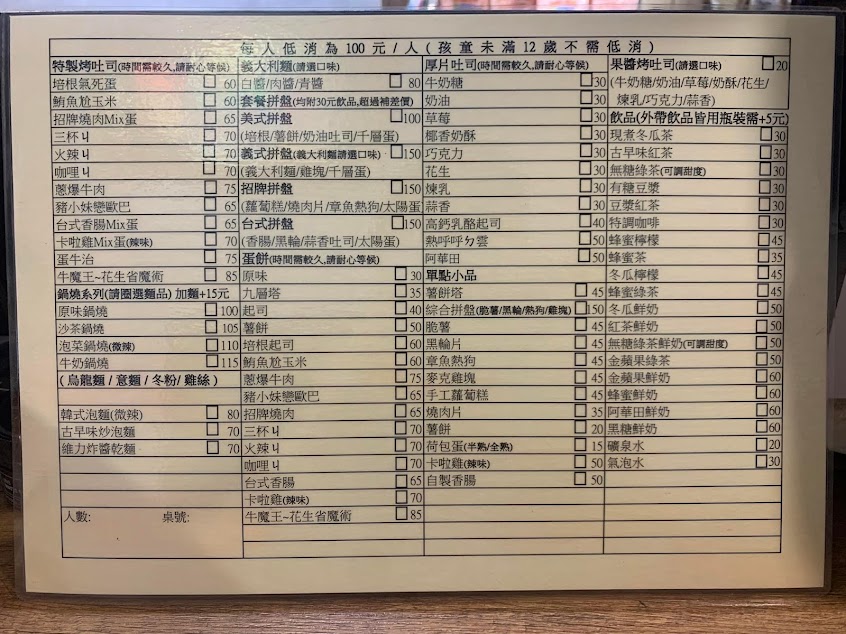 每人低消為100元/人(孩童未滿12歲不需低消)
特製烤吐司(時間需較久,請耐心等候)
培根氣死蛋 60
鮪魚尬玉米 60
招牌燒肉Mix蛋 65
三杯ㄐ 70
火辣ㄐ 70
咖哩ㄐ 70
蔥爆牛肉 75
豬小妹戀歐巴 65
台式香腸Mix蛋 65
卡啦雞Mix蛋(辣味) 70
蛋牛治 75
牛魔王~花生省魔術 85
鍋燒系列(請圈選麵品) 加麵+15元
原味鍋燒 100
沙茶鍋燒 105
泡菜鍋燒(微辣) 110
牛奶鍋燒 115
(烏龍麵/意麵/冬粉/雞絲)
韓式泡麵(微辣) 80
古早味炒泡麵 70
維力炸醬乾麵 70
人數: 桌號:
義大利麵(請選口味)
白醬/肉醬/青醬 80
套餐拼盤(均附30元飲品,超過補差價)
美式拼盤 100
(培根/薯餅/奶油吐司/千層蛋)
義式拼盤(義大利麵請選口味) 150
(義大利麵/雞塊/千層蛋)
招牌拼盤 150
(蘿蔔糕/燒肉片/章魚熱狗/太陽蛋
台式拼盤 150
(香腸/黑輪/蒜香吐司/太陽蛋)
蛋餅(時間需較久,請耐心等候)
原味 30
九層塔 35
起司 40
薯餅 50
培根起司 60
鮪魚尬玉米 60
蔥爆牛肉 75
豬小妹戀歐巴 65
招牌燒肉 65
三杯ㄐ 70
火辣ㄐ 70
咖哩ㄐ 70
台式香腸 65
卡啦雞(辣味) 70
牛魔王~花生省魔術 85
厚片吐司(請選口味)
牛奶糖 30
奶油 30
草莓 30
椰香奶酥 30
巧克力 30
花生 30
煉乳 30
蒜香 30
高鈣乳酪起司 40
熱呼呼ㄉ雲 50
阿華田 50
單點小品
薯餅塔 45
綜合拼盤(脆薯/黑輪/熱狗/雞塊) 150
脆薯 45
黑輪片 45
章魚熱狗 45
麥克雞塊 45
手工蘿蔔糕 45
燒肉片 35
薯餅 20
荷包蛋(半熟/全熟) 15
卡啦雞(辣味) 50
自製香腸 50
果醬烤吐司(請選口味) 20
(牛奶糖/奶油/草莓/奶酥/花生/
煉乳/巧克力/蒜香)
飲品(外帶飲品皆用瓶裝需+5元)
現煮冬瓜茶 30
古早味紅茶 30
無糖綠茶(可調甜度) 30
有糖豆漿 30
豆漿紅茶 30
特調咖啡 30
蜂蜜檸檬 45
蜂蜜茶 35
冬瓜檸檬 45
蜂蜜綠茶 45
冬瓜鮮奶 50
紅茶鮮奶 50
無糖綠茶鮮奶(可調甜度) 50
金蘋果綠茶 50
金蘋果鮮奶 60
蜂蜜鮮奶 60
阿華田鮮奶 60
黑糖鮮奶 60
礦泉水 20
氣泡水 30